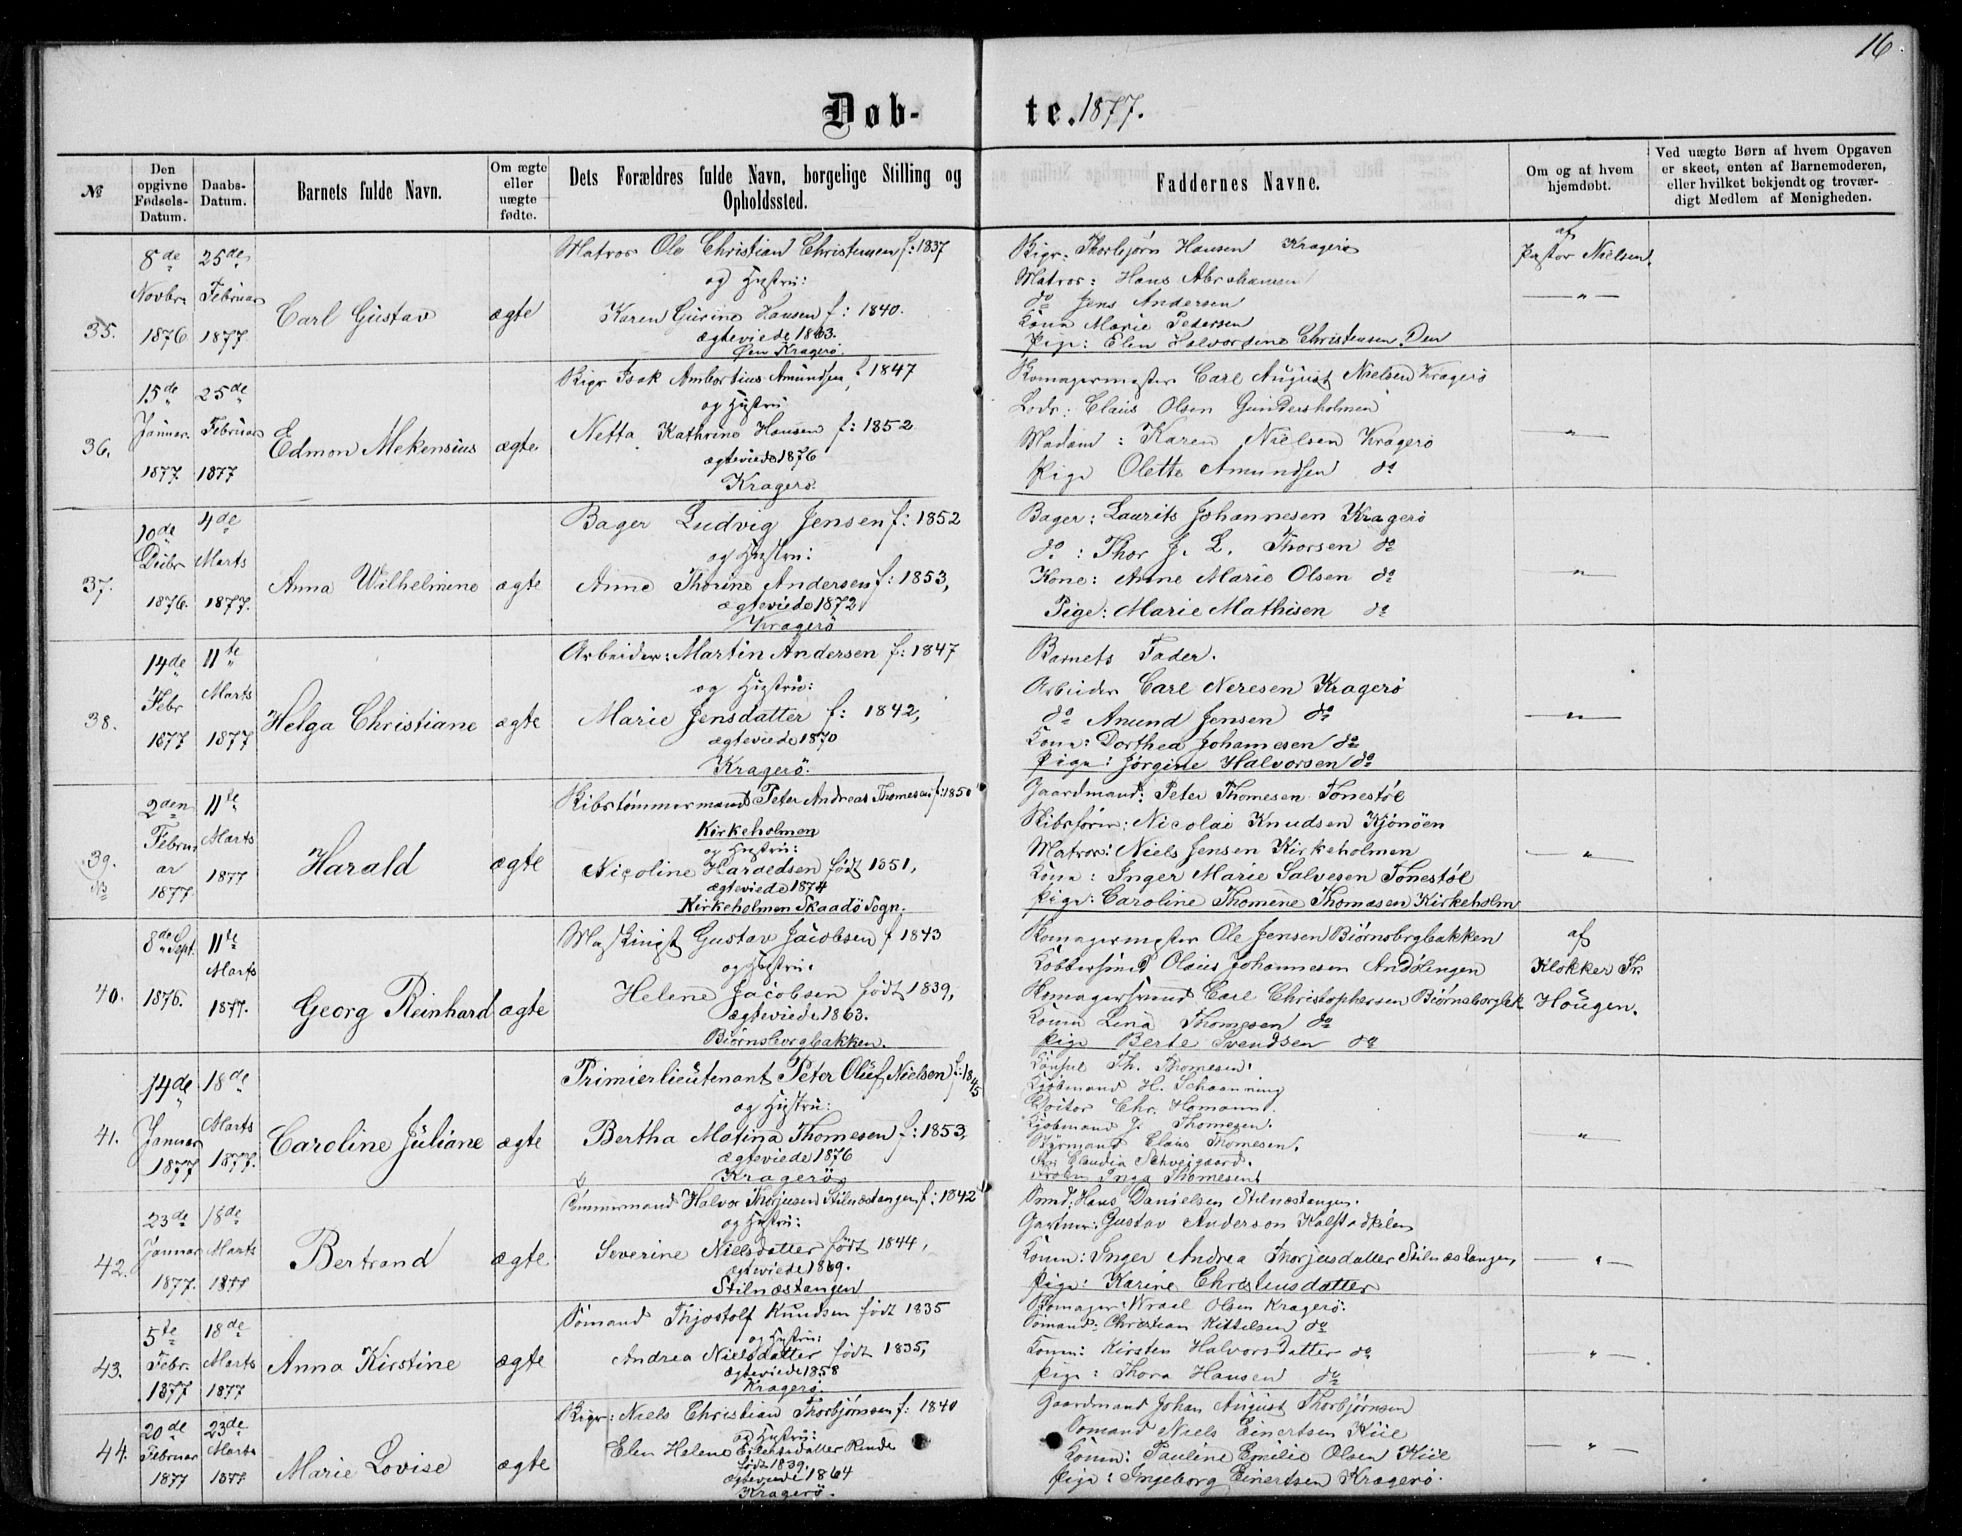 16
Døb- te. 1877.
№
Den opgivne Fødsels-Datum.
Daabs-Datum.
Barnets fulde Navn.
Om ægte eller uægte fødte.
Dets Forældres fulde Navn, borgelige Stilling og Opholdssted.
Faddernes Navne.
Om og af hvem hjemdøbt.
Ved uægte Børn af hvem Opgaven er skeet, enten af Barnemoderen, eller hvilket bekjendt og troværdigt Medlem af Menigheden.
35.
8de Novbr. 1876
25de Februar 1877.
Carl Gustav
ægte
Matros Ole Christian Christensen f: 1837
og Hustru:
Karen Gurine Hansen f: 1840.
ægteviede 1863.
Øen Kragerø.
Thorbjørn Hansen Kragerø
Matros: Hans Abrahamsen
do Jens Andersen
Kona Marie Pedersen
Pige: Elen Halvordine Christensen. Øen
af
Pastor Nielsen.
36.
15de Januar. 1877.
25de Februar 1877
Edmon Mekensius
ægte
Isak Ambortius Amundsen f 1847
og Hustru
Netta Kathrine Hansen f: 1852
ægteviede 1876
Kragerø.
Komagermester Carl August Nielsen Kragerø
Lods: Claus Olsen Gundersholmen
Madam: Karen Nielsen Kragerø
Pige Olette Amundsen do
"
37.
10de Decbr 1876.
4de Marts 1877.
Anna Wilhelmine
ægte
Bager Ludvig Jensen f: 1852
og Hustru:
Anne Thorine Andersen f: 1853,
ægteviede 1872
Kragerø
Bager: Laurits Johannesen Kragerø
do: Thor J. L. Thorsen do
Kone: Anne Marie Olsen do
Pige: Marie Mathisen do
"
38.
14de Febr 1877
11te Marts 1877
Helga Christiane
ægte
Arbeider: Martin Andersen f: 1847
og Hustru:
Marie Jensdatter f: 1842,
ægteviede 1870
Kragerø.
Barnets Fader.
Arbeider Carl Neresen Kragerø
do Anund Jensen do
Kona: Dorthea Johannesen do
Pige: Jørgine Halvorsen do
"
39.
2den Februar 1877.
11te Marts 1877
Harald
ægte
Skibstømmermand Peter Andreas Thomesen f: 1850
Kirkeholmen
og Hustru:
Nicoline Haraldsen født 1851,
ægteviede 1874
Kirkeholmen Skaadø Sogn.
Gaardmand: Peter Thomesen Tonestøl
Skibsfører: Nicolai Knudsen Kjønøen
Matros: Niels Jensen Kirkeholmen
Kona: Inger Marie Salvesen Tonestøl
Pige: Caroline Thomine Thomasen Kirkeholm
"
40.
8de Sept. 1876.
11te Marts 1877.
Georg Reinhard
ægte
Maskinist Gustav Jacobsen f 1843
og Hustru.
Helene Jacobsen født 1839,
ægteviede 1863.
Biørnsborgbakken.
Komagermester Ole Jensen Biørnsbrgbakken
Kobbersmed Olaus Johannesen
Komagersvend Carl Christophersen Biørnsborgbk
Konen Lina Thomesen do
Pige Berte Svendsen do
af
Klokker
Hougen.
41.
14de Januar 1877
18de Marts 1877.
Caroline Juliane
ægte
Primierlieutenant Peter Oluf Nielsen f: 1845
og Hustru:
Bertha Matina Thomesen f: 1853,
ægteviede 1876
Kragerø
Konsul Th. Thomesen.
Kjøbmand H. Schaanning
Doctor Chr. Homann.
Kjøbmand J. Thomesen.
Styrmand Claus Thomesen.
Claudia Schveigaard.
Inga Thomesen
"
42.
23de Januar 1877.
18de Marts 1877
Bertrand
ægte
Tømmermand Halvor Thorjusen Stilnæstangen f: 1842
og Hustru:
Severine Nielsdatter født 1844,
ægteviede 1869.
Stilnæstangen
Hans Danielsen Stilnæstangen.
Gartner: Gustav Anderson Kalstadkilen
Konen: Inger Andrea Thorjusdatter Stilnæstangen,
Pige: Karine Christensdatter
"
43.
5te Febr. 1877
18de Marts 1877
Anna Kirstine
ægte
Sømand Thjostolf Knudsen født 1835
og Hustru:
Andrea Nielsdatter født 1835,
ægteviede 1858
Kragerø.
Komager: Wrael Olsen Kragerø.
Sømand: Christian Kittilsen do
Konen: Kirsten Halvorsdatter do
Pige: Thora Hansen do
"
44.
20de Februar 1877
23de Marts 1877.
Marie Lovise
ægte
Niels Christian Thorbjørnsen f: 1840
og Hustru:
Elen Helene Einertsdatter
født 1839.
ægteviede 1864
Kragerø.
Gaardmand Johan August Thorbjørnsen
Sømand Niels Einertsen Kiil
Konen: Pauline Emilie Olsen Kiil
Pige: Ingeborg Einertsen Kragerø.
"